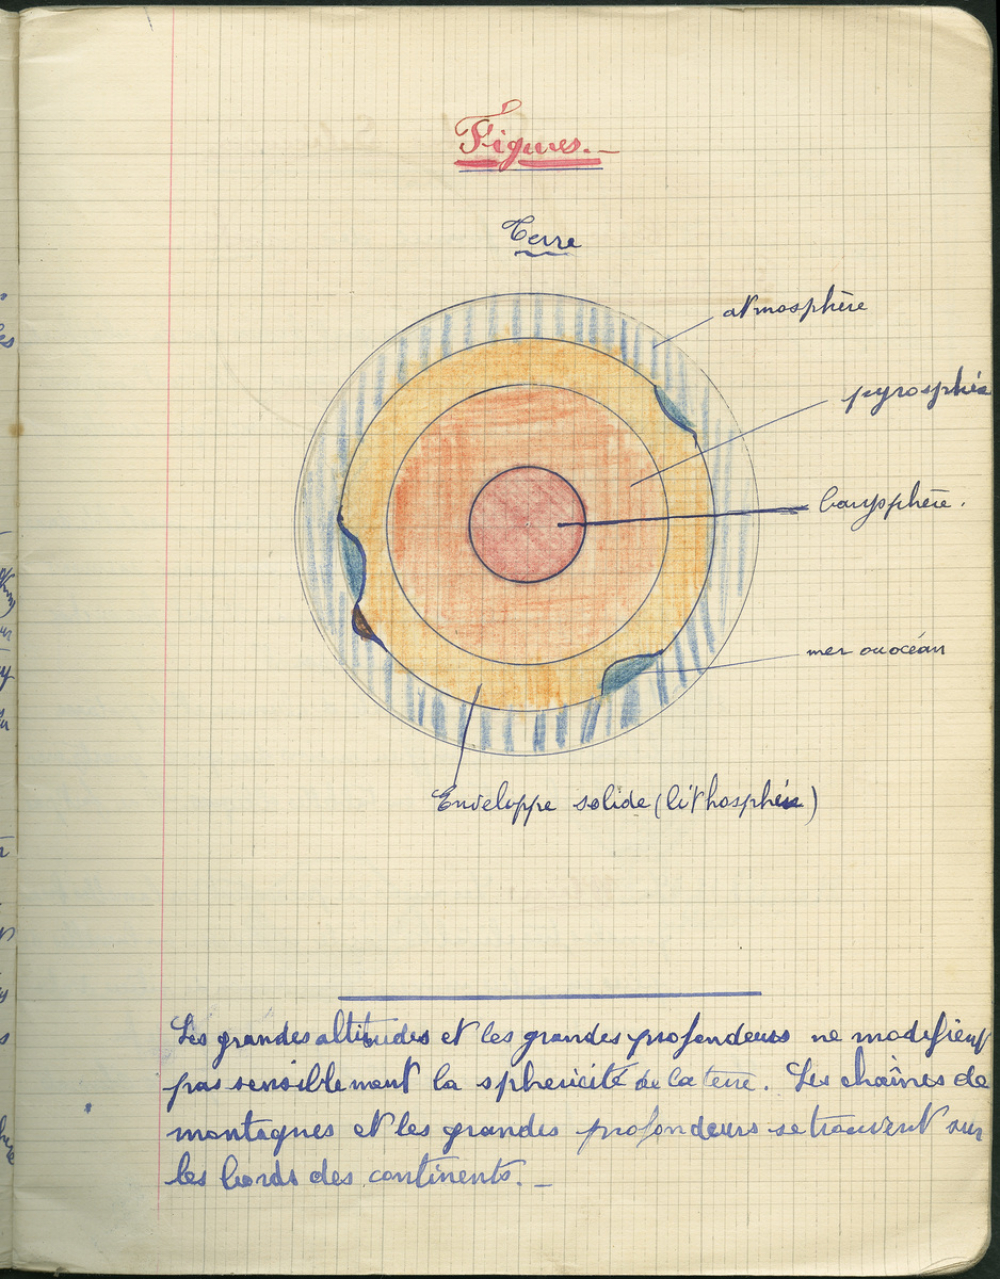 Figures._
Terre
atmosphère
pyrosphè
barysphère.
mer ou océan
Enveloppe solide (lithosphère)
Les grandes altitudes et les grandes profondeurs ne modifient
pas sensiblement la sphericité de la terre. Les chaînes de
montagnes et les grandes profondeurs se trouvent sur
les bords des continents._